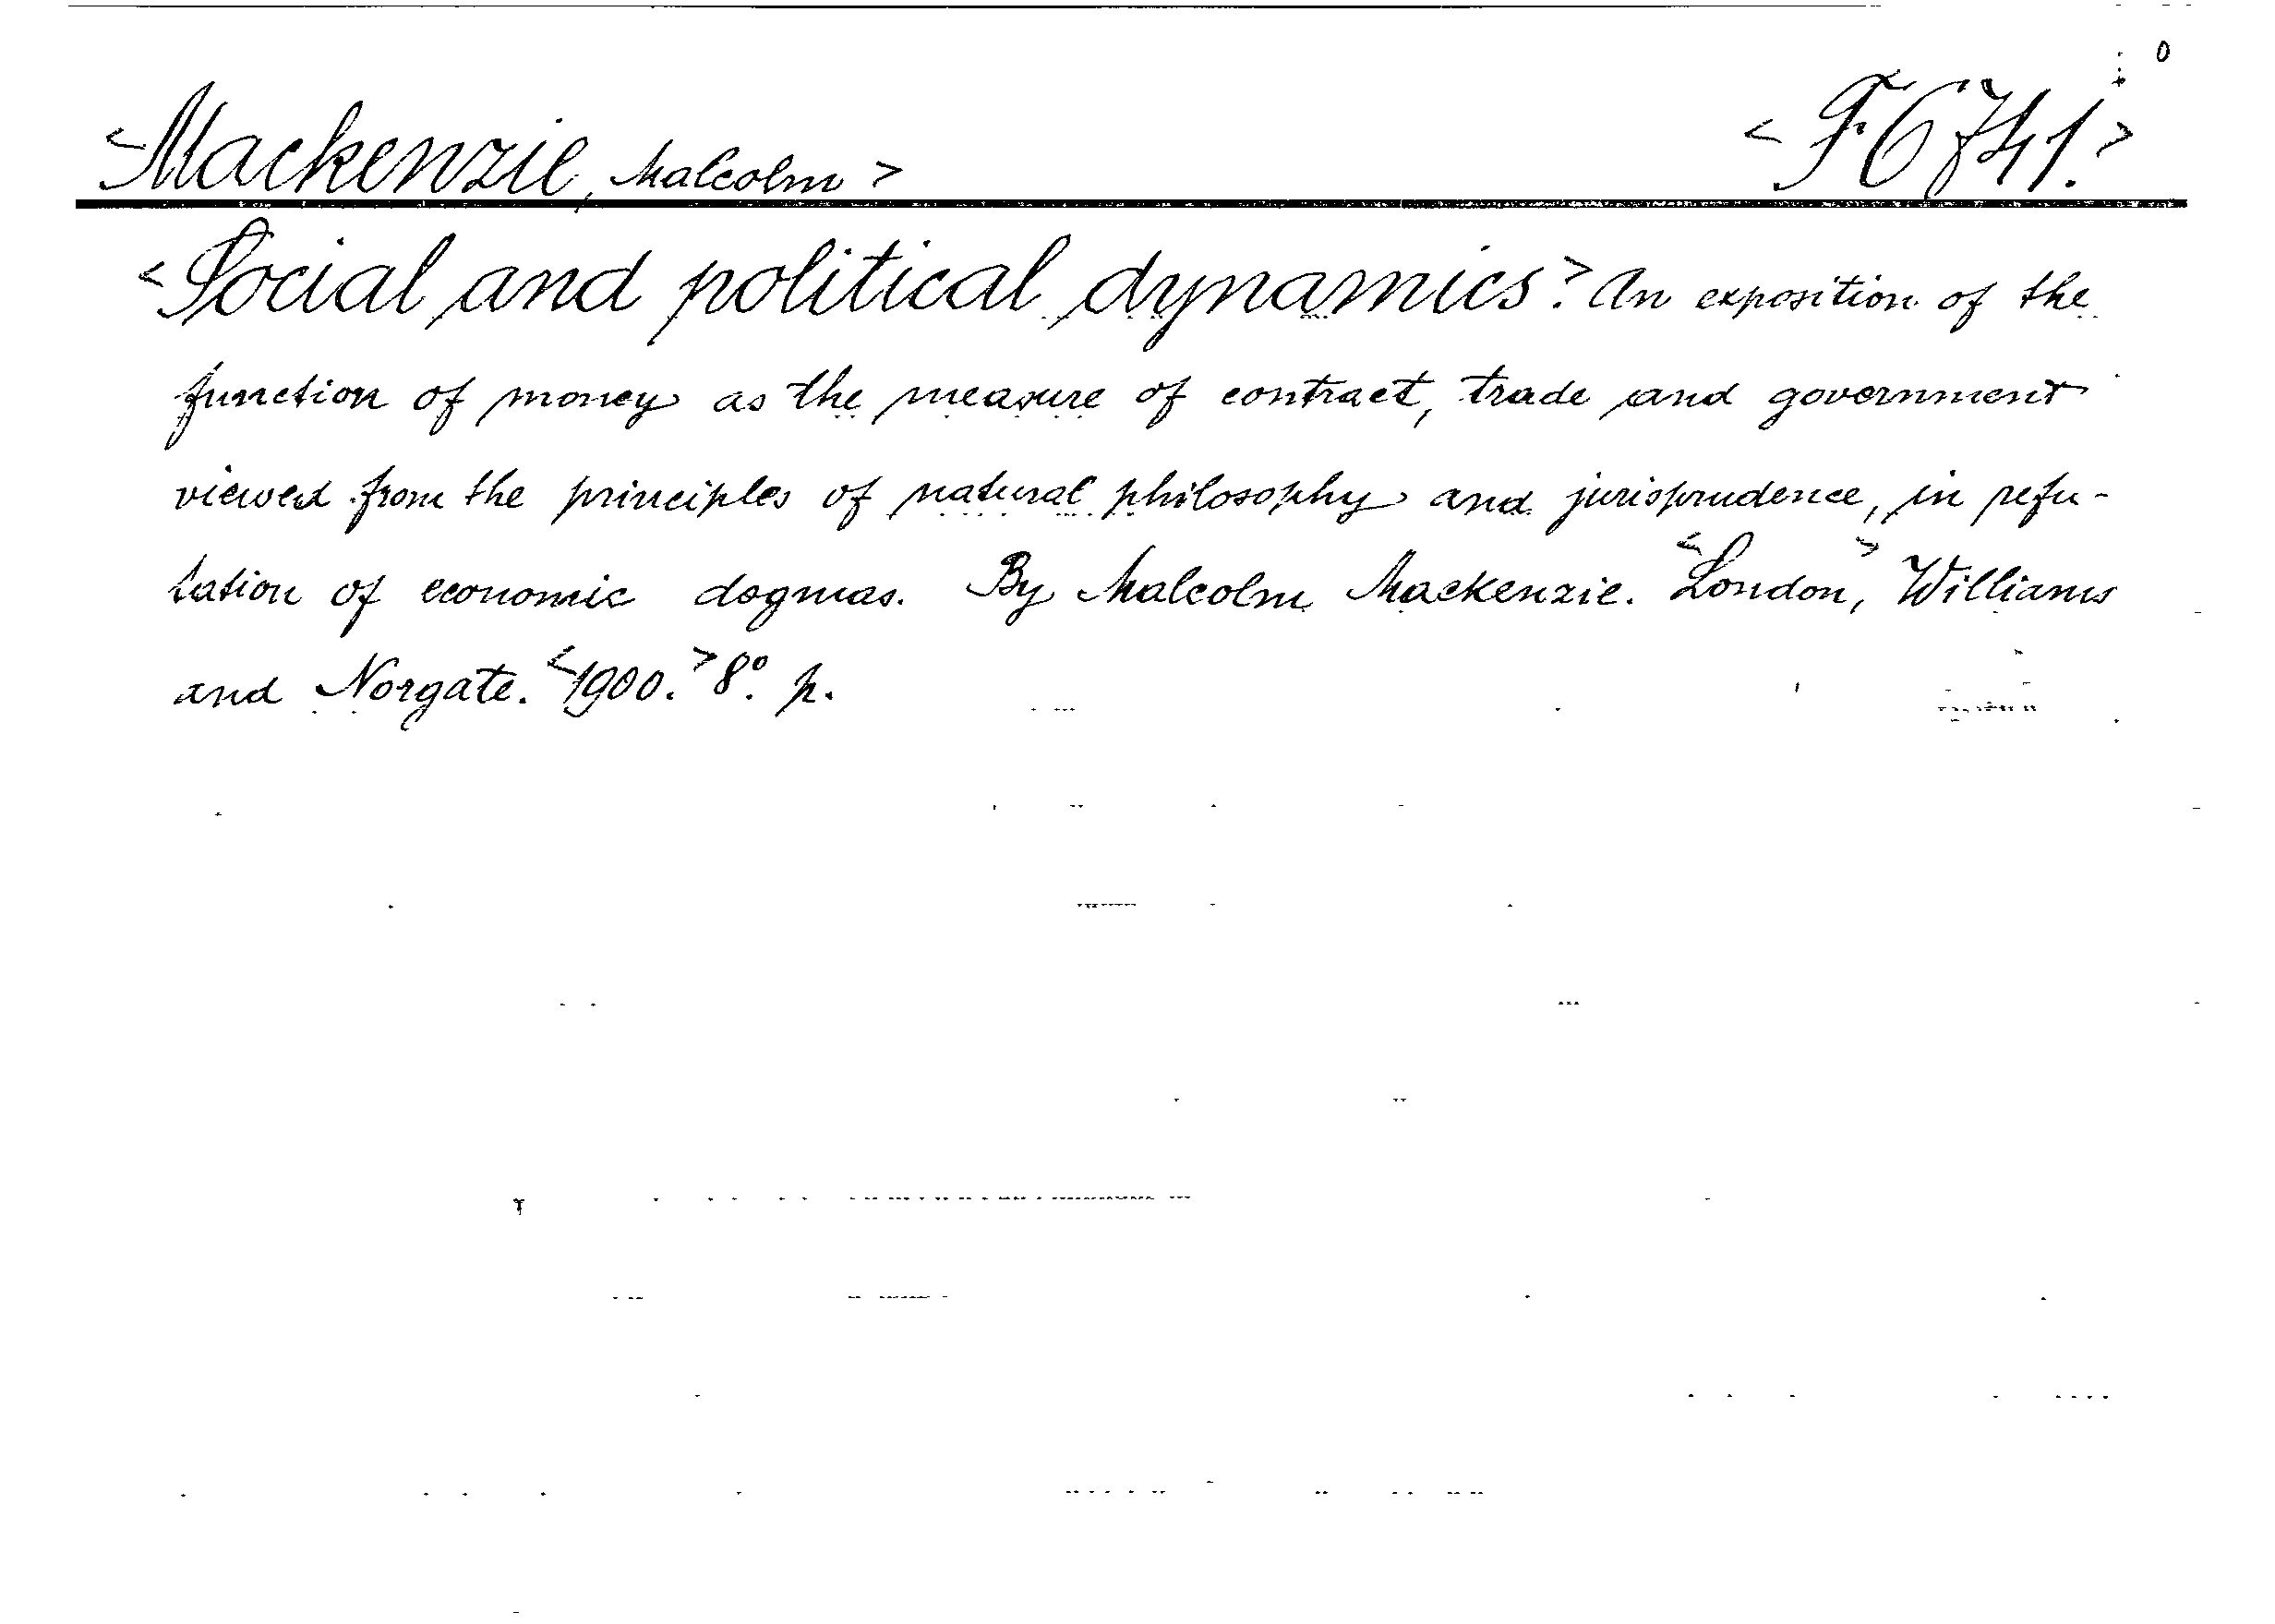 <Mackenzie, Malcolm> <F 6741.>
<Social and political dynamics.> An exposition of the
function of money as the measure of contract, trade and government
viewed from the principles of natural philosophy and jurisprudence, in refu-
tation of economic dogmas. By Malcolm Mackenzie. <London,> Williams
and Norgate. <1900.> 8º. p.